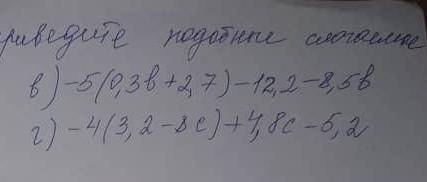 приведите подобные слагаемые
в) -5(0,3в+2,7)-12,2-8,5в
г) -4(3,2-8с)+4,8с-5,2